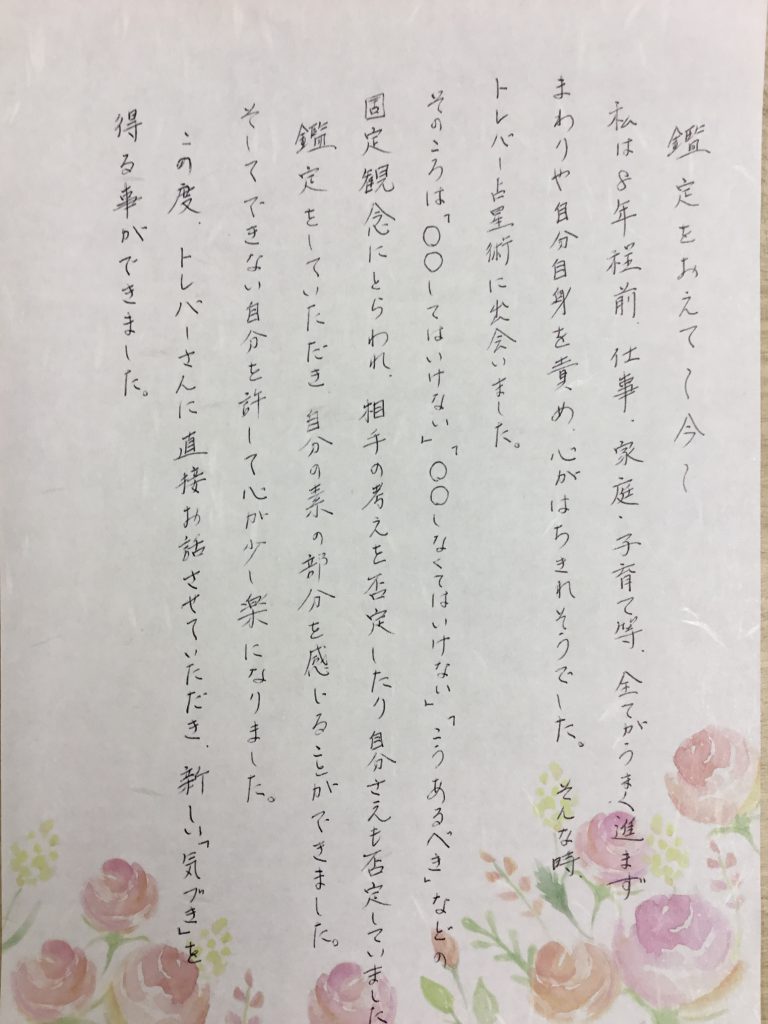 鑑定をおえて～今～
私は8年程前、仕事、家庭・子育て等、全てがうまく進まず
まわりや自分自身を責め、心がはちきれそうでした。そんな時、
トレバー占星術に出会いました。
そのころは「〇〇してはいけない」「〇〇しなくてはいけない」「こうあるべき」などの
固定観念にとらわれ、相手の考えを否定したり自分さえも否定していました
鑑定をしていただき、自分の素の部分を感じることができました。
そしてできない自分を許して心が少し楽になりました。
この度、トレバーさんに直接お話させていただき、新しい「気づき」を
得る事ができました。